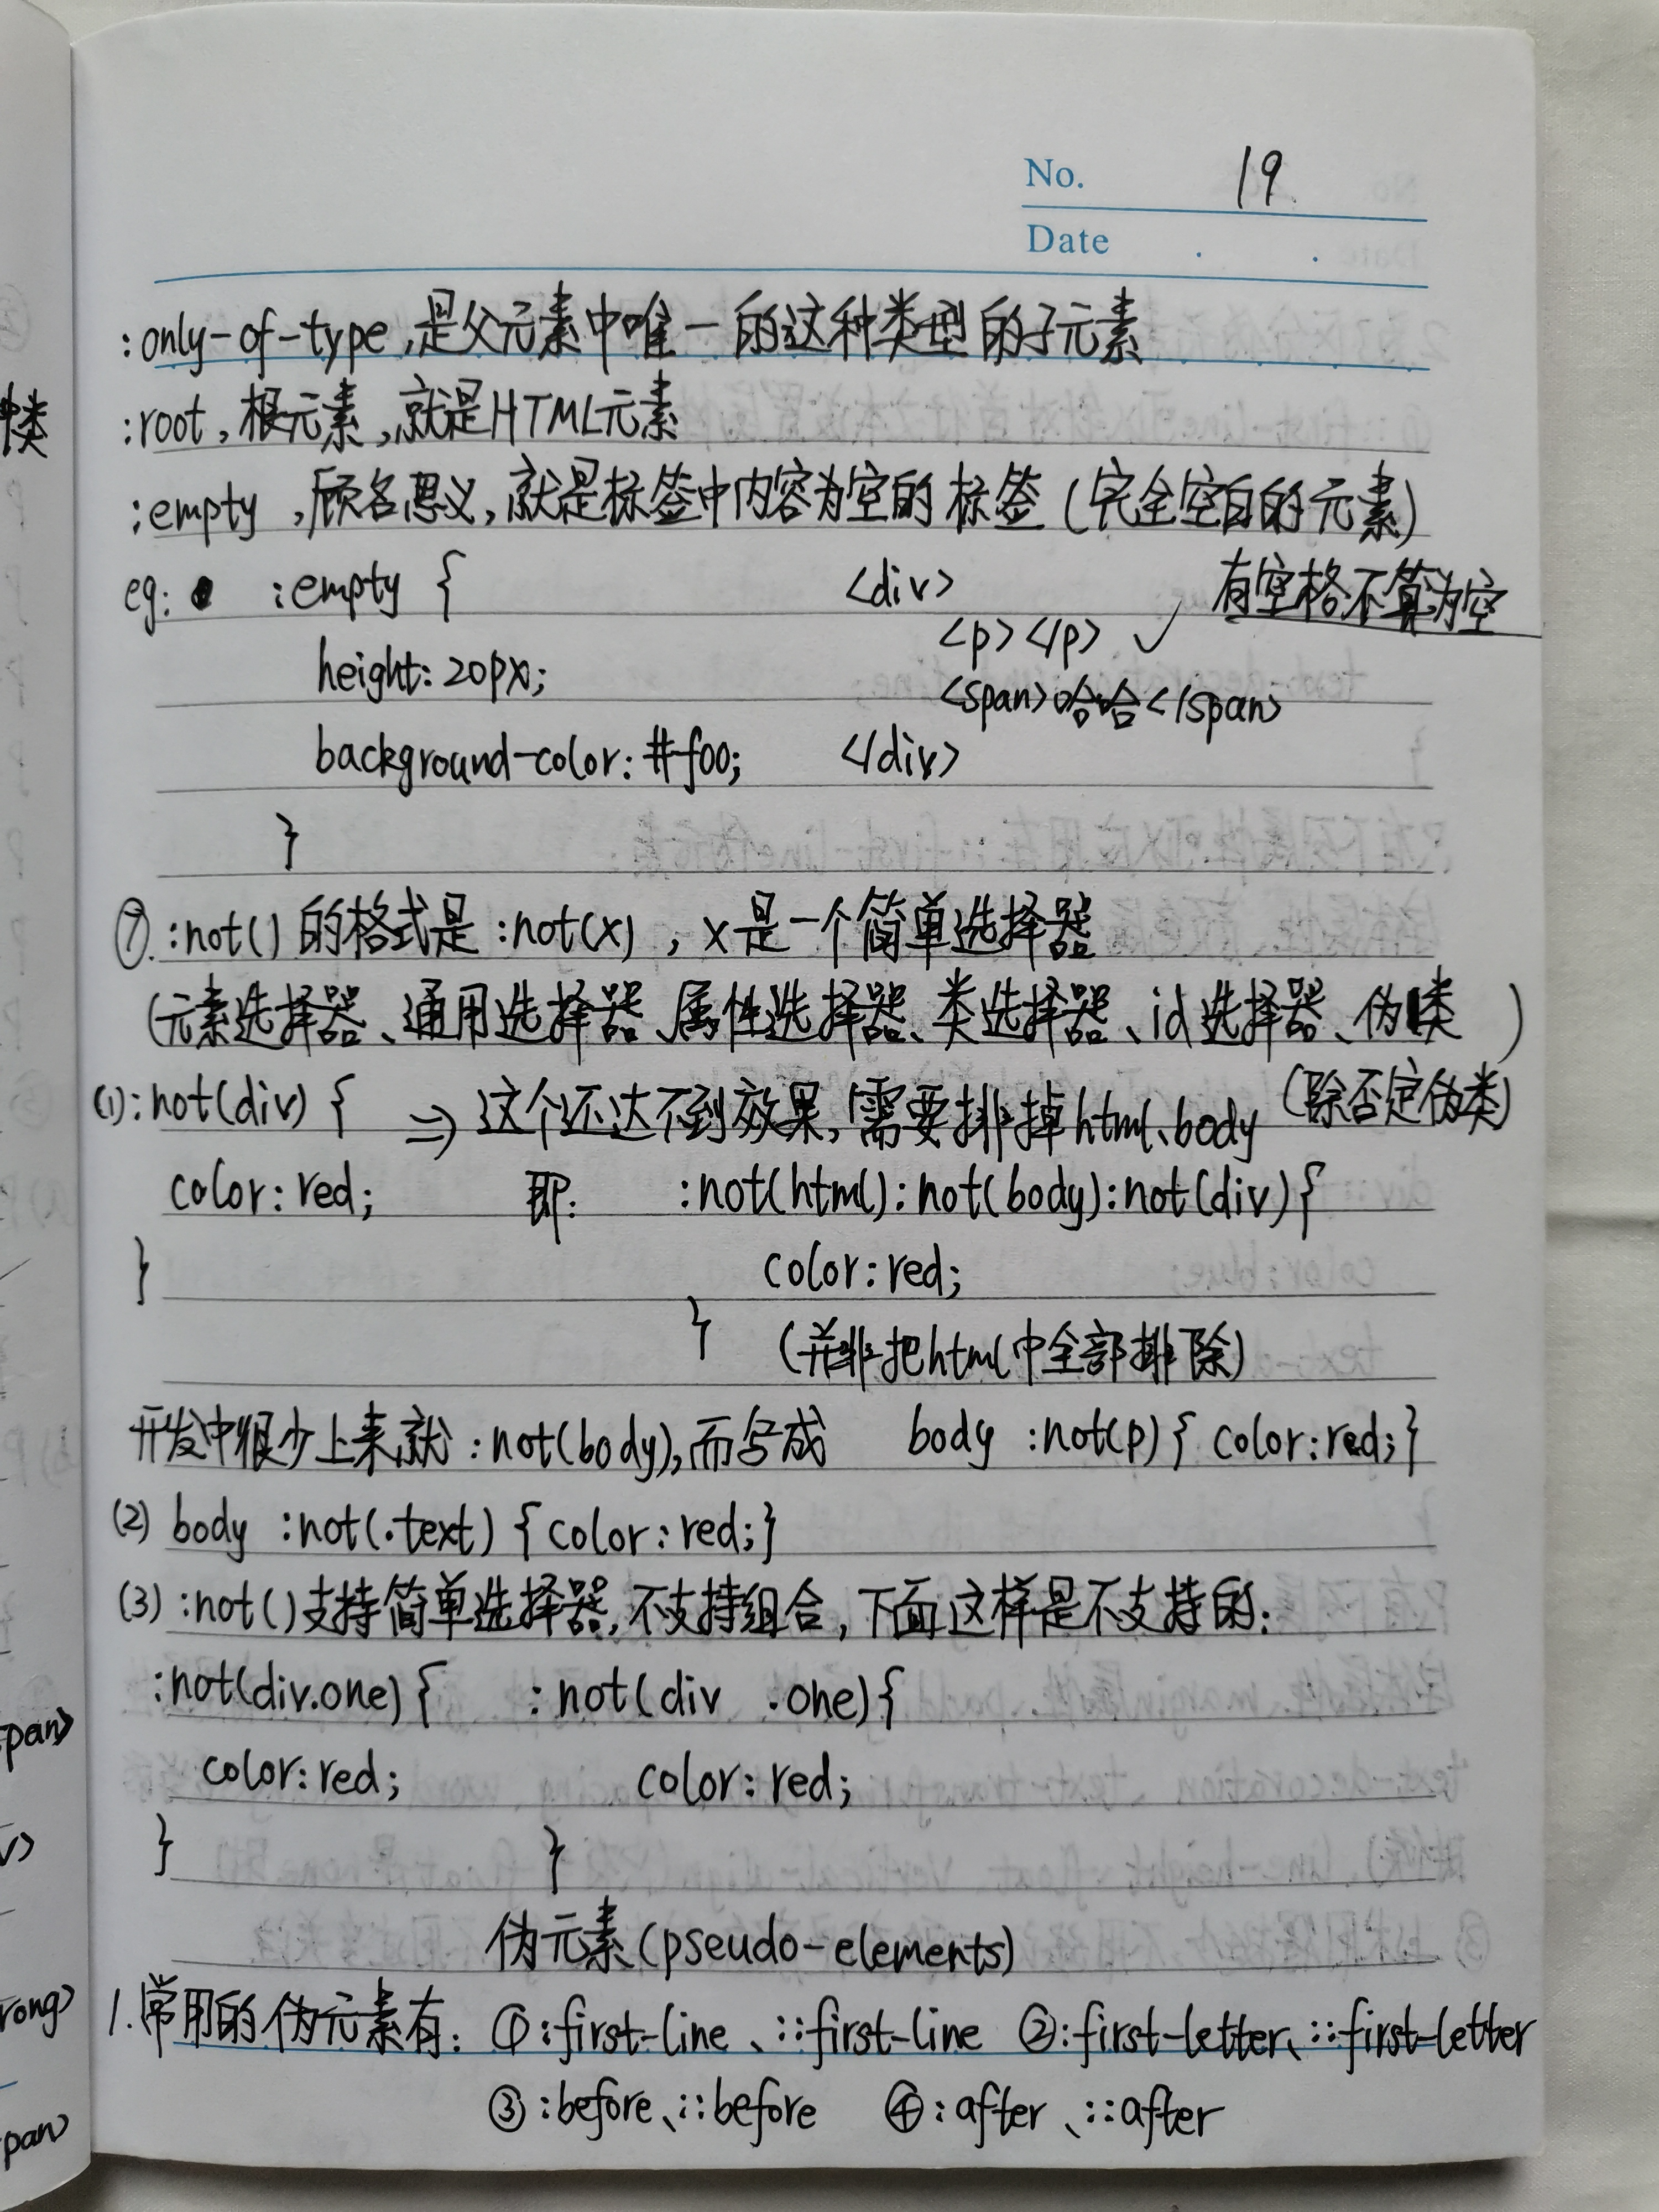 No. 19
Date . .
:only-of-type,是父元素中唯一的这种类型的子元素
:root,根元素,就是HTML元素
:empty,顾名思义,就是标签中内容为空的标签(完全空白的元素)
eg: :empty { <div> 有空格不算为空
<p></p> ✓
height: 20px;
<span>哈哈</span>
background-color: #f00; </div>
}
⑦. :not()的格式是:not(x),x是一个简单选择器
(元素选择器、通用选择器、属性选择器、类选择器、id选择器、伪类)
(除否定伪类)
(1):not(div) { ⇒ 这个还达不到效果,需要排掉html、body
color: red; 即: :not(html):not(body):not(div){
} color: red;
} (并非把html中全部排除)
开发中很少上来就:not(body),而写成 body :not(p){ color: red;}
(2) body :not(.text) {color: red;}
(3) :not()支持简单选择器,不支持组合,下面这样是不支持的:
:not(div.one){ :not(div .one){
color: red; color: red;
} }
伪元素(pseudo-elements)
1.常用的伪元素有: ①:first-line、::first-line ②:first-letter、::first-letter
③:before、::before ④:after、::after
种类
span>
v>
rong>
pan>